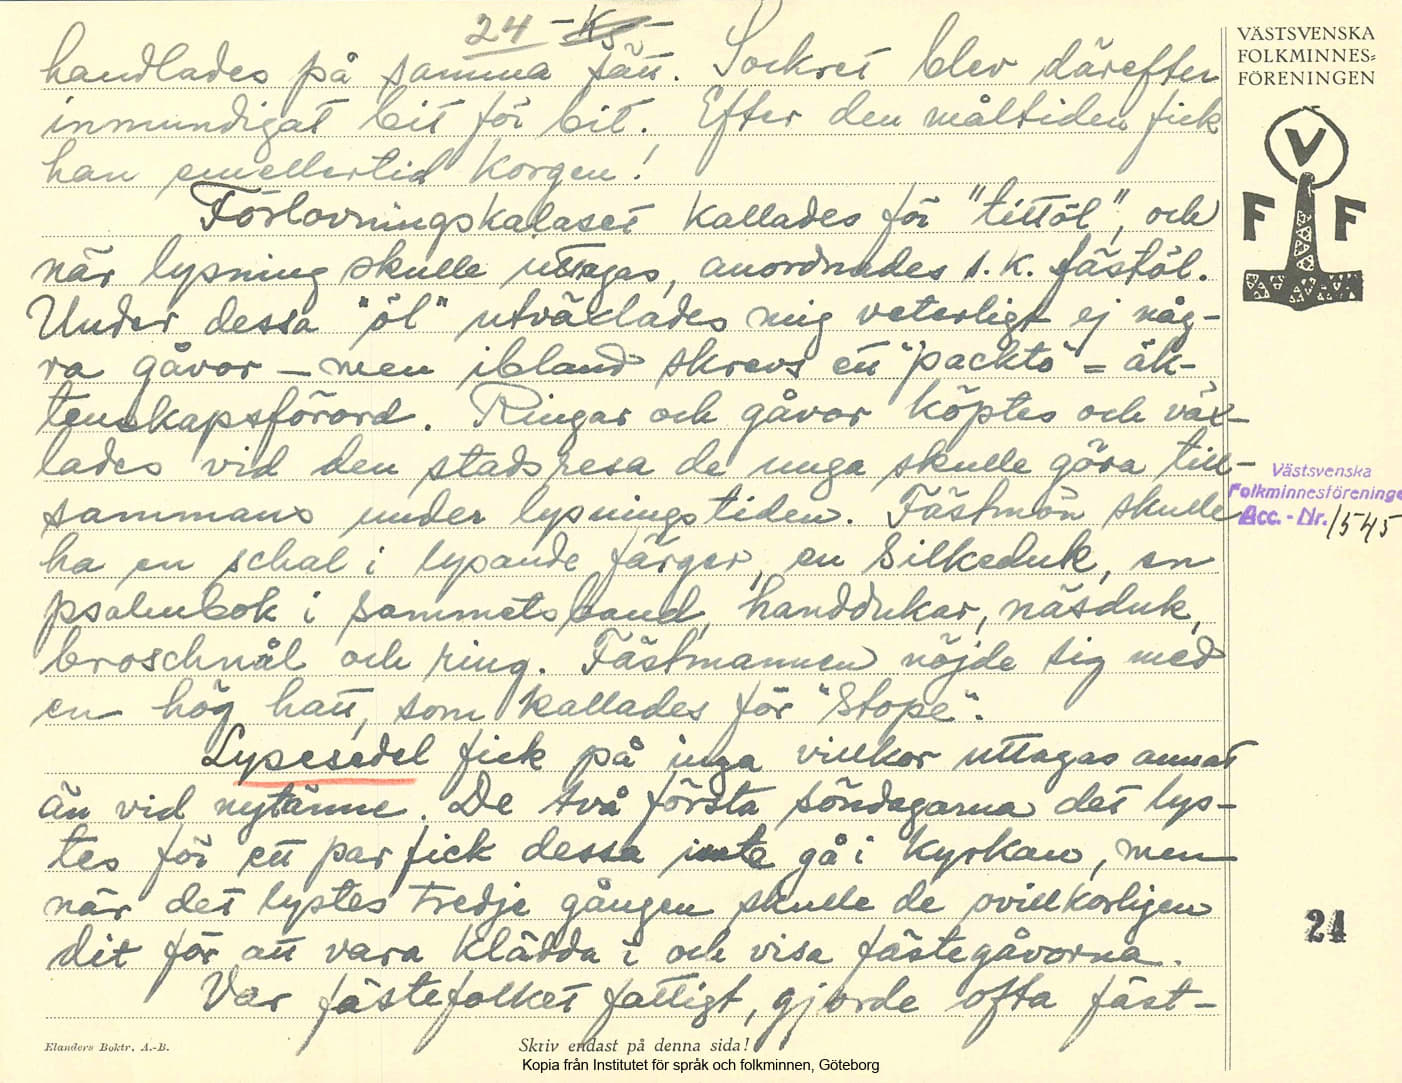 24
handlades på samma sätt. Sockret blev därefter
inmundigat bit för bit. Efter den måltiden fick
han emellertid korgen!
Förlovningskalaset kallades för "tittöl", och
när lysning skulle uttagas, anordnades s.k. fästöl.
Under dessa "öl" utväxlades mig veterligt ej någ-
ra gåvor - men ibland skrevs ett "packto" = äk-
tenskapsförord. Ringar och gåvor köptes och väx-
lades vid den stadsresa de unga skulle göra till-
sammans under lysningstiden. Fästmön skulle
ha en schal i lysande färger, en silkeduk, en
psalmbok i sammetsband, handdukar, näsduk,
broschnål och ring. Fästmannen nöjde sig med
en hög hatt, som kallades för "Stope".
Lysesedel fick på inga villkor uttagas annat
än vid nytänne. De två första söndagarna det lys-
tes för ett par fick dessa inte gå i kyrkan, men
när det lystes tredje gången skulle de ovillkorligen
dit för att vara klädda i och visa fästegåvorna.
Var fästefolket fattigt, gjorde ofta fäst-
VÄSTSVENSKA
FOLKMINNES=
FÖRENINGEN
V
F F
Västsvenska
Folkminnesföreninge
Acc.-Nr. 1545
24
Elanders Boktr. A.-B.
Skriv endast på denna sida!
Kopia från Institutet för språk och folkminnen, Göteborg